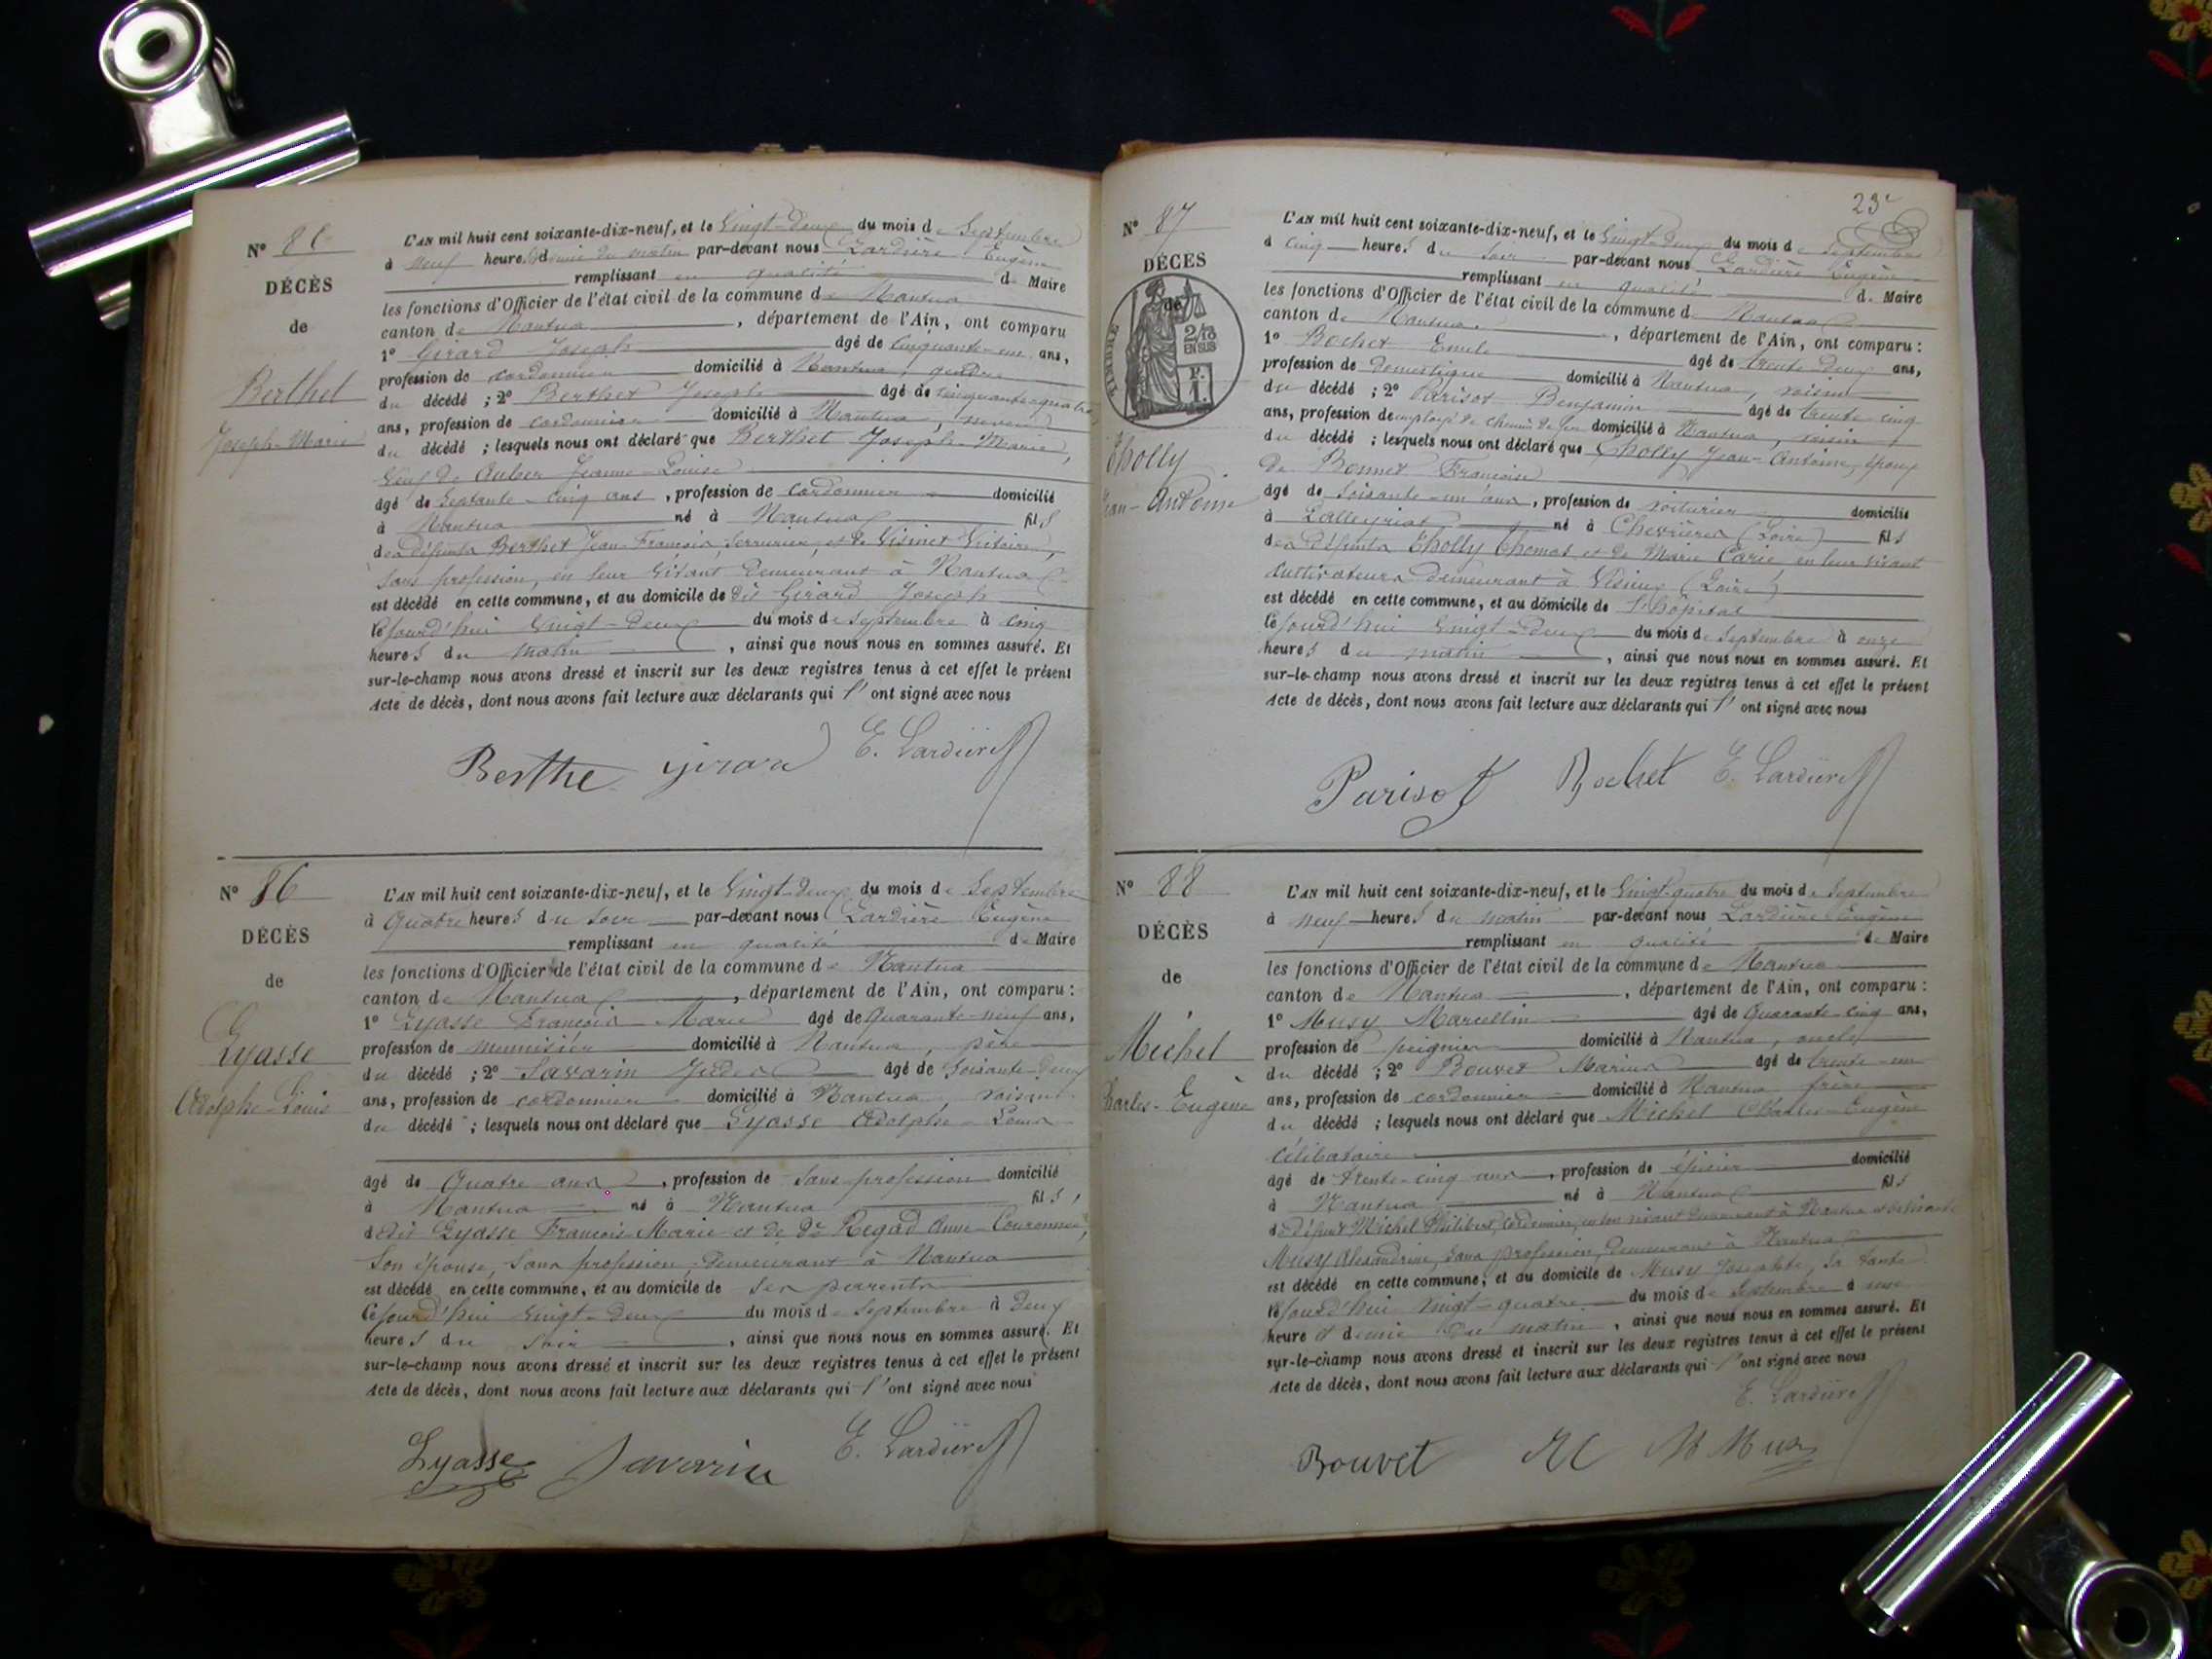 N°
DÉCÈS
de
Berthet
Joseph-Marie
L'AN mil huit cent soixante-dix-neuf, et le Vingt-deux du mois de Septembre
à neuf heures demie du matin par-devant nous Lardière Eugène
remplissant en qualité de Maire
les fonctions d'Officier de l'état civil de la commune de Nantua
canton de Nantua, département de l'Ain, ont comparu
1° Girard Joseph âgé de Cinquante-un ans,
profession de cordonnier domicilié à Nantua, gendre
du décédé ; 2° Berthet Joseph âgé de cinquante-quatre
ans, profession de cordonnier domicilié à Nantua, neveu
du décédé ; lesquels nous ont déclaré que Berthet Joseph-Marie,
Veuf de Jeanne-Louise
âgé de Septante-cinq ans, profession de cordonnier domicilié
à Nantua né à Nantua fils
des défunts Berthet Jean-François, serrurier, et de
sans profession, en leur vivant demeurant à Nantua
est décédé en cette commune, et au domicile de dit Girard Joseph
cejourd'hui Vingt-deux du mois de Septembre à cinq
heures du matin, ainsi que nous nous en sommes assuré. Et
sur-le-champ nous avons dressé et inscrit sur les deux registres tenus à cet effet le présent
Acte de décès, dont nous avons fait lecture aux déclarants qui l'ont signé avec nous
Berthe Girard E. Lardière
N° 86
DÉCÈS
de
Lyasse
Adolphe-Louis
L'AN mil huit cent soixante-dix-neuf, et le Vingt-deux du mois de Septembre
à Quatre heures du soir par-devant nous Lardière Eugène
remplissant en qualité de Maire
les fonctions d'Officier de l'état civil de la commune de Nantua
canton de Nantua, département de l'Ain, ont comparu :
1° Lyasse François Marie âgé de Quarante-neuf ans,
profession de menuisier domicilié à Nantua, père
du décédé ; 2° Savarin âgé de Soixante-deux
ans, profession de cordonnier domicilié à Nantua, voisin
du décédé ; lesquels nous ont déclaré que Lyasse Adolphe-Louis
âgé de Quatre ans, profession de sans profession domicilié
à Nantua né à Nantua fils
de dit Lyasse François-Marie et de de Regad Anne
Son épouse, sans profession, demeurant à Nantua
est décédé en cette commune, et au domicile de ses parents
cejourd'hui Vingt-deux du mois de Septembre à deux
heures du soir, ainsi que nous nous en sommes assuré. Et
sur-le-champ nous avons dressé et inscrit sur les deux registres tenus à cet effet le présent
Acte de décès, dont nous avons fait lecture aux déclarants qui l'ont signé avec nous
Lyasse Savarin E. Lardière
23
N° 87
DÉCÈS
de
TIMBRE
2/10
EN SUS
F.
1.
Tholly
Jean-Antoine
L'AN mil huit cent soixante-dix-neuf, et le Vingt-deux du mois de Septembre
à cinq heures du soir par-devant nous Lardière Eugène
remplissant en qualité de Maire
les fonctions d'Officier de l'état civil de la commune de Nantua
canton de Nantua, département de l'Ain, ont comparu :
1° Bochet Emile âgé de trente-deux ans,
profession de domestique domicilié à Nantua, voisin
du décédé ; 2° Parisot Benjamin âgé de trente-cinq
ans, profession de employé de chemin de fer domicilié à Nantua, voisin
du décédé ; lesquels nous ont déclaré que Tholly Jean-Antoine, époux
de Bonnet Françoise
âgé de Soixante-un ans, profession de voiturier domicilié
à Lalleyriat né à Chevrières (Loire) fils
des défunts Tholly Thomas et de Marie en leur vivant
cultivateurs demeurant à (Loire)
est décédé en cette commune, et au domicile de l'hôpital
cejourd'hui Vingt-deux du mois de Septembre à onze
heures du matin, ainsi que nous nous en sommes assuré. Et
sur-le-champ nous avons dressé et inscrit sur les deux registres tenus à cet effet le présent
Acte de décès, dont nous avons fait lecture aux déclarants qui l'ont signé avec nous
Parisot Bochet E. Lardière
N° 88
DÉCÈS
de
Michel
Charles-Eugène
L'AN mil huit cent soixante-dix-neuf, et le Vingt-quatre du mois de Septembre
à neuf heures du matin par-devant nous Lardière Eugène
remplissant en qualité de Maire
les fonctions d'Officier de l'état civil de la commune de Nantua
canton de Nantua, département de l'Ain, ont comparu :
1° Musy Marcellin âgé de Quarante-cinq ans,
profession de peignier domicilié à Nantua, oncle
du décédé ; 2° Bouvet Marius âgé de trente-un
ans, profession de cordonnier domicilié à Nantua frère
du décédé ; lesquels nous ont déclaré que Michel Charles-Eugène
célibataire
âgé de trente-cinq ans, profession de épicier domicilié
à Nantua né à Nantua fils
de défunt Michel Philibert, cordonnier, en son vivant demeurant à Nantua
Musy Alexandrine, sans profession, demeurant à Nantua
est décédé en cette commune, et au domicile de Musy Josephte, sa tante
cejourd'hui Vingt-quatre du mois de Septembre à une
heure et demie du matin, ainsi que nous nous en sommes assuré. Et
sur-le-champ nous avons dressé et inscrit sur les deux registres tenus à cet effet le présent
Acte de décès, dont nous avons fait lecture aux déclarants qui l'ont signé avec nous
E. Lardière
Bouvet M Musy